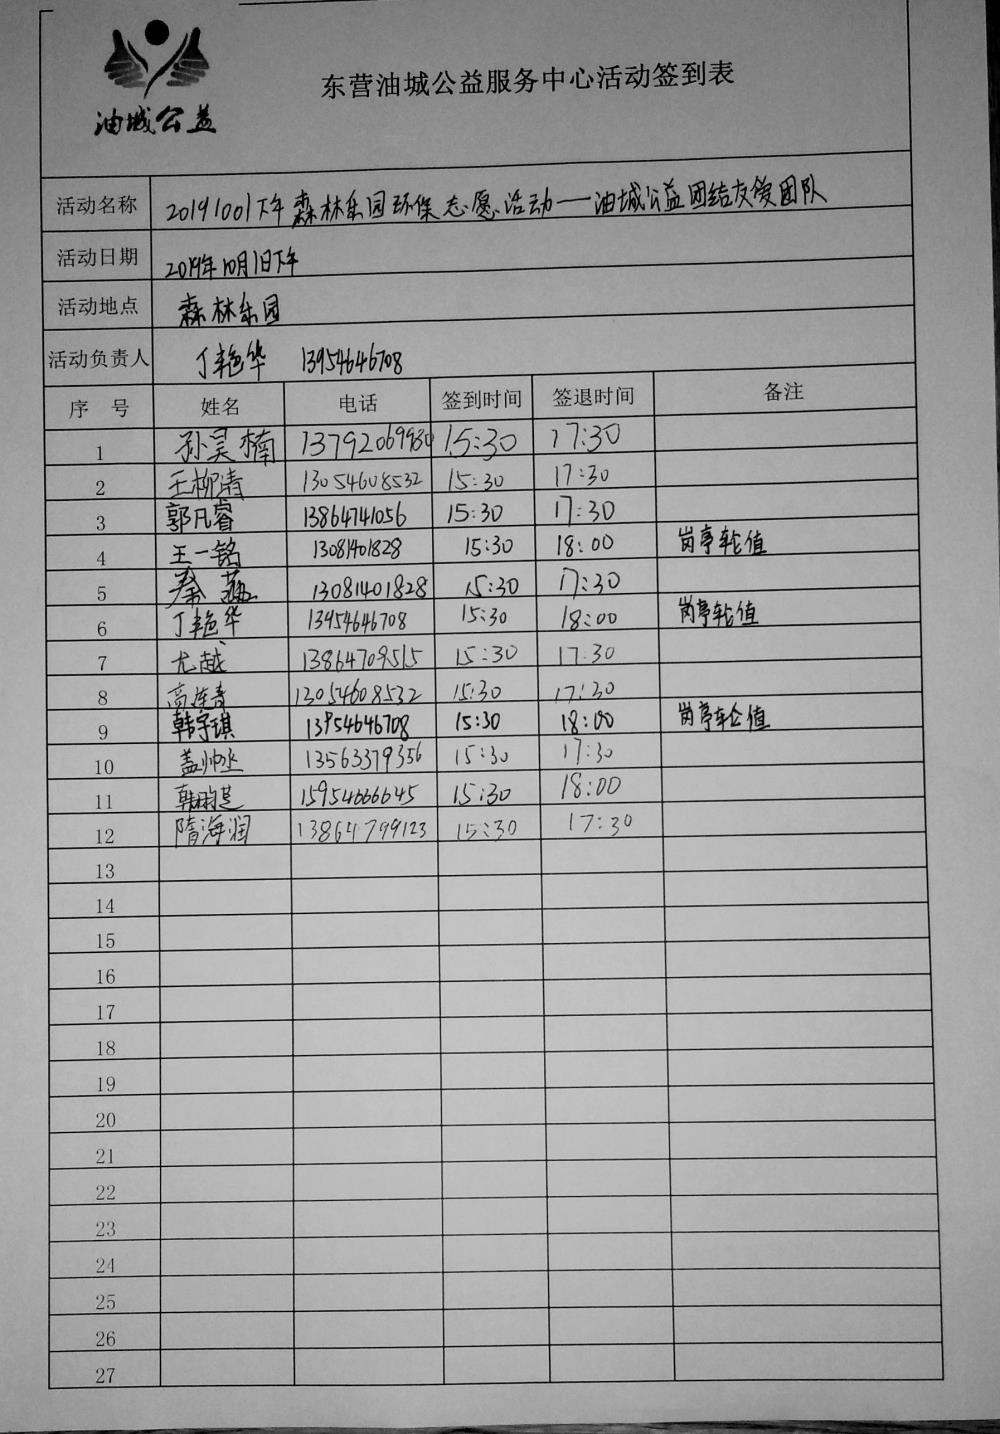 油城公益
东营油城公益服务中心活动签到表
活动名称 20191001下午森林乐园环保志愿活动——油城公益团结友爱团队
活动日期 2019年10月1日下午
活动地点 森林乐园
活动负责人 丁艳华 13954646708
序号 姓名 电话 签到时间 签退时间 备注
1 孙昊楠 13792069980 15:30 17:30
2 王柳清 13054608532 15:30 17:30
3 郭凡睿 13864741056 15:30 17:30
4 王一铭 13081401828 15:30 18:00 岗亭轮值
5 秦燕 13081401828 15:30 17:30
6 丁艳华 13954646708 15:30 18:00 岗亭轮值
7 尤越 13864709515 15:30 17:30
8 高莲青 13054608532 15:30 17:30
9 韩宇琪 13954646708 15:30 18:00 岗亭轮值
10 盖帅丞 13563379356 15:30 17:30
11 15954666645 15:30 18:00
12 隋海润 13864799123 15:30 17:30
13
14
15
16
17
18
19
20
21
22
23
24
25
26
27